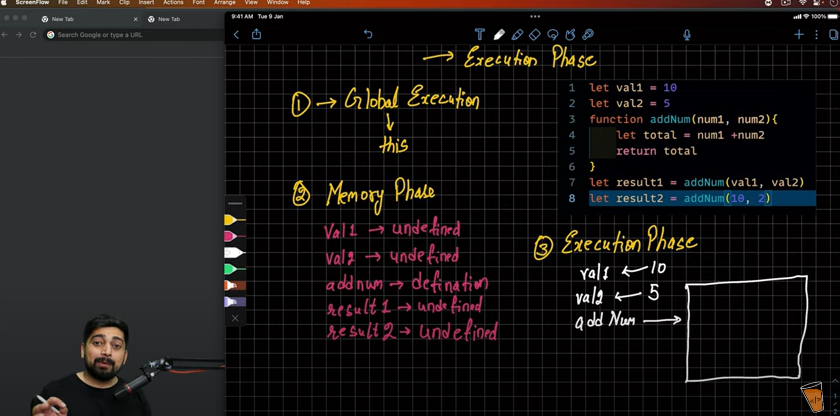 ScreenFlow File Edit Mark Clip Insert Actions Font Arrange View Window Help
New Tab
New Tab
Search Google or type a URL
9:41 AM Tue 9 Jan
100%
→ Execution Phase
① → Global Execution
↓
this
② Memory Phase
val1 → undefined
val2 → undefined
addnum → defination
result1 → undefined
result2 → undefined
1 let val1 = 10
2 let val2 = 5
3 function addNum(num1, num2){
4 let total = num1 +num2
5 return total
6 }
7 let result1 = addNum(val1, val2)
8 let result2 = addNum(10, 2)
③ Execution Phase
val1 ← 10
val2 ← 5
addNum →